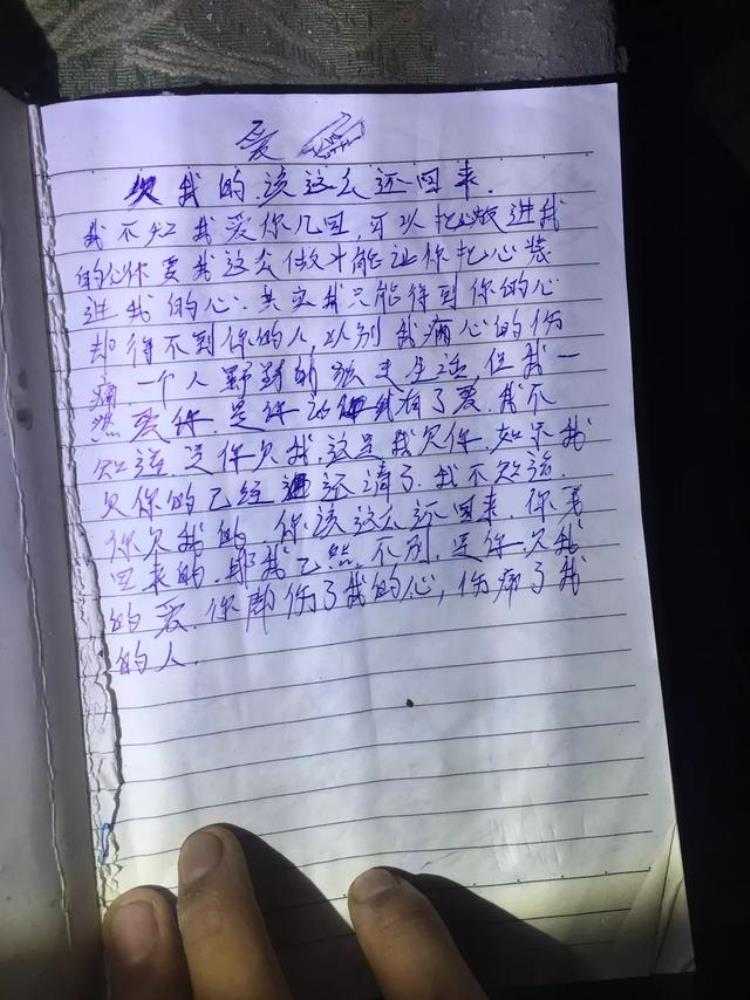 爱
欠我的.该这么还回来.
我不知我爱你几回,可以把心放进我
的心你要我这么做才能让你把心装
进我的心.其实我只能得到你的心
却得不到你的人,从别我痛心的伤
痛.一个人野对的孤走生活,但我一
然爱你.是你让我有了爱.我不
知道是你欠我.这是我欠你.如果我
欠你的已经还清了.我不知该.
你欠我的.你该这么还回来.你
回来的.那我已然不别.是你欠我
的爱.你却伤了我的心,伤痛了我
的人.